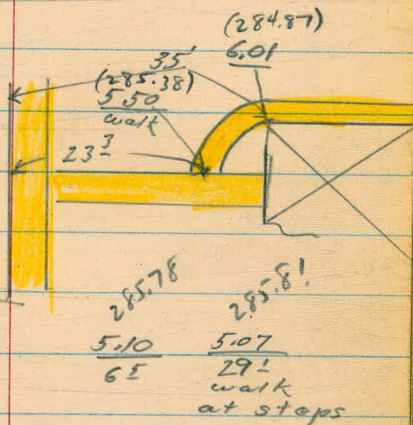 (284.87)
6.01
35'
(285.38)
5.50
walk
23 3
285.78
285.81
5.10
6 5
5.07
29 1
walk
at steps